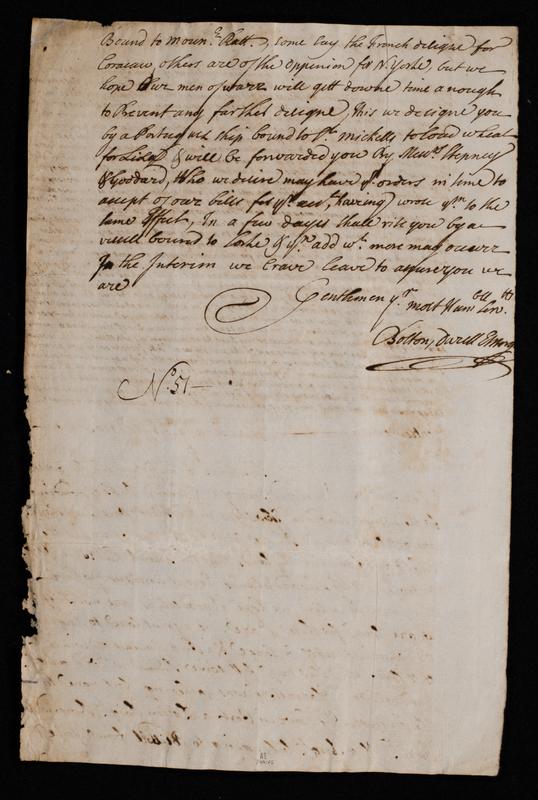 Bound to River Platt, some say the French designe for
Coracaw, others are of the oppinion for N: Yorke, but we
hope our men of warr will gett downe time a nough
to Prevent any farther designe, this we designe you
by a Portuguesh ship bound to St. Michells to load wheat
for & will be forwarded you By Messrs. Stepney
& Goddard, Who we desire may have yr. orders in time to
accept of our bills for yr. acct., having wrote ym. to the
same Effect, In a few dayes shall rite you by a
vessell bound to Corke & yn. add wt. more may occurr
In the Interim we Crave leave to assure you we
are
Gentlemen yr. most Humble. Servts.
Bolton, Durell
No. 51 —